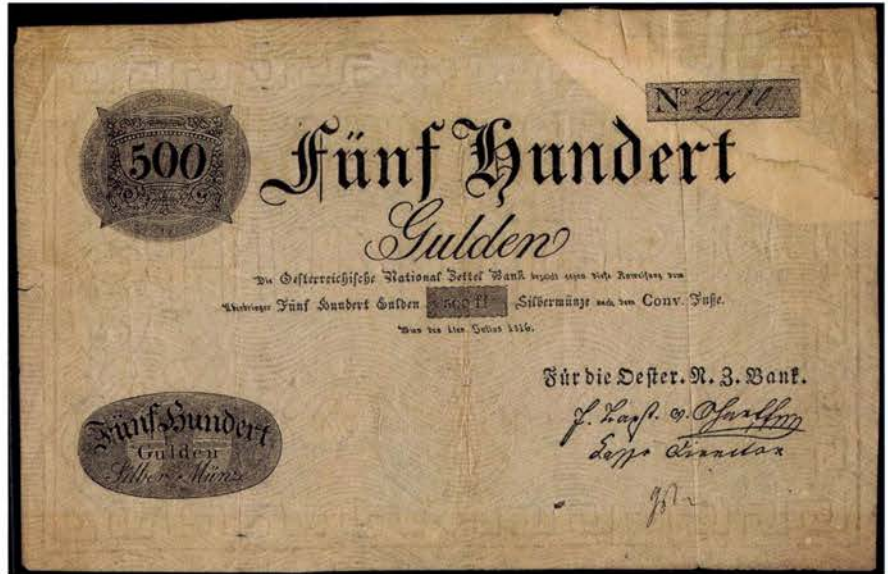 500
Nº 2710
Fünf Hundert
Gulden
Die Oesterreichische National Zettel Bank bezahlt gegen diese Anweisung dem
Uiberbringer Fünf Hundert Gulden 500 fl Silbermünze nach dem Conv. Fuße.
Wien den 1ten Julius 1816.
Für die Oester. N. Z. Bank.
Cassa Director
Fünf Hundert
Gulden
Silber Münze